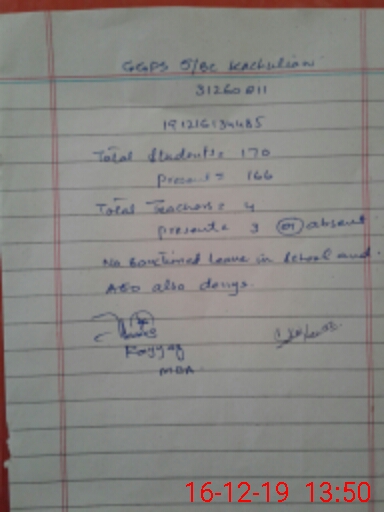 GGPS 5/BC Kachulian
31260811
Total Students = 170
Present = 166
Total Teachers = 4
present = 3 01 absent
No Sanctioned Leave in School and
AEO also denys.
Fayyaz
MEA
16-12-19 13:50